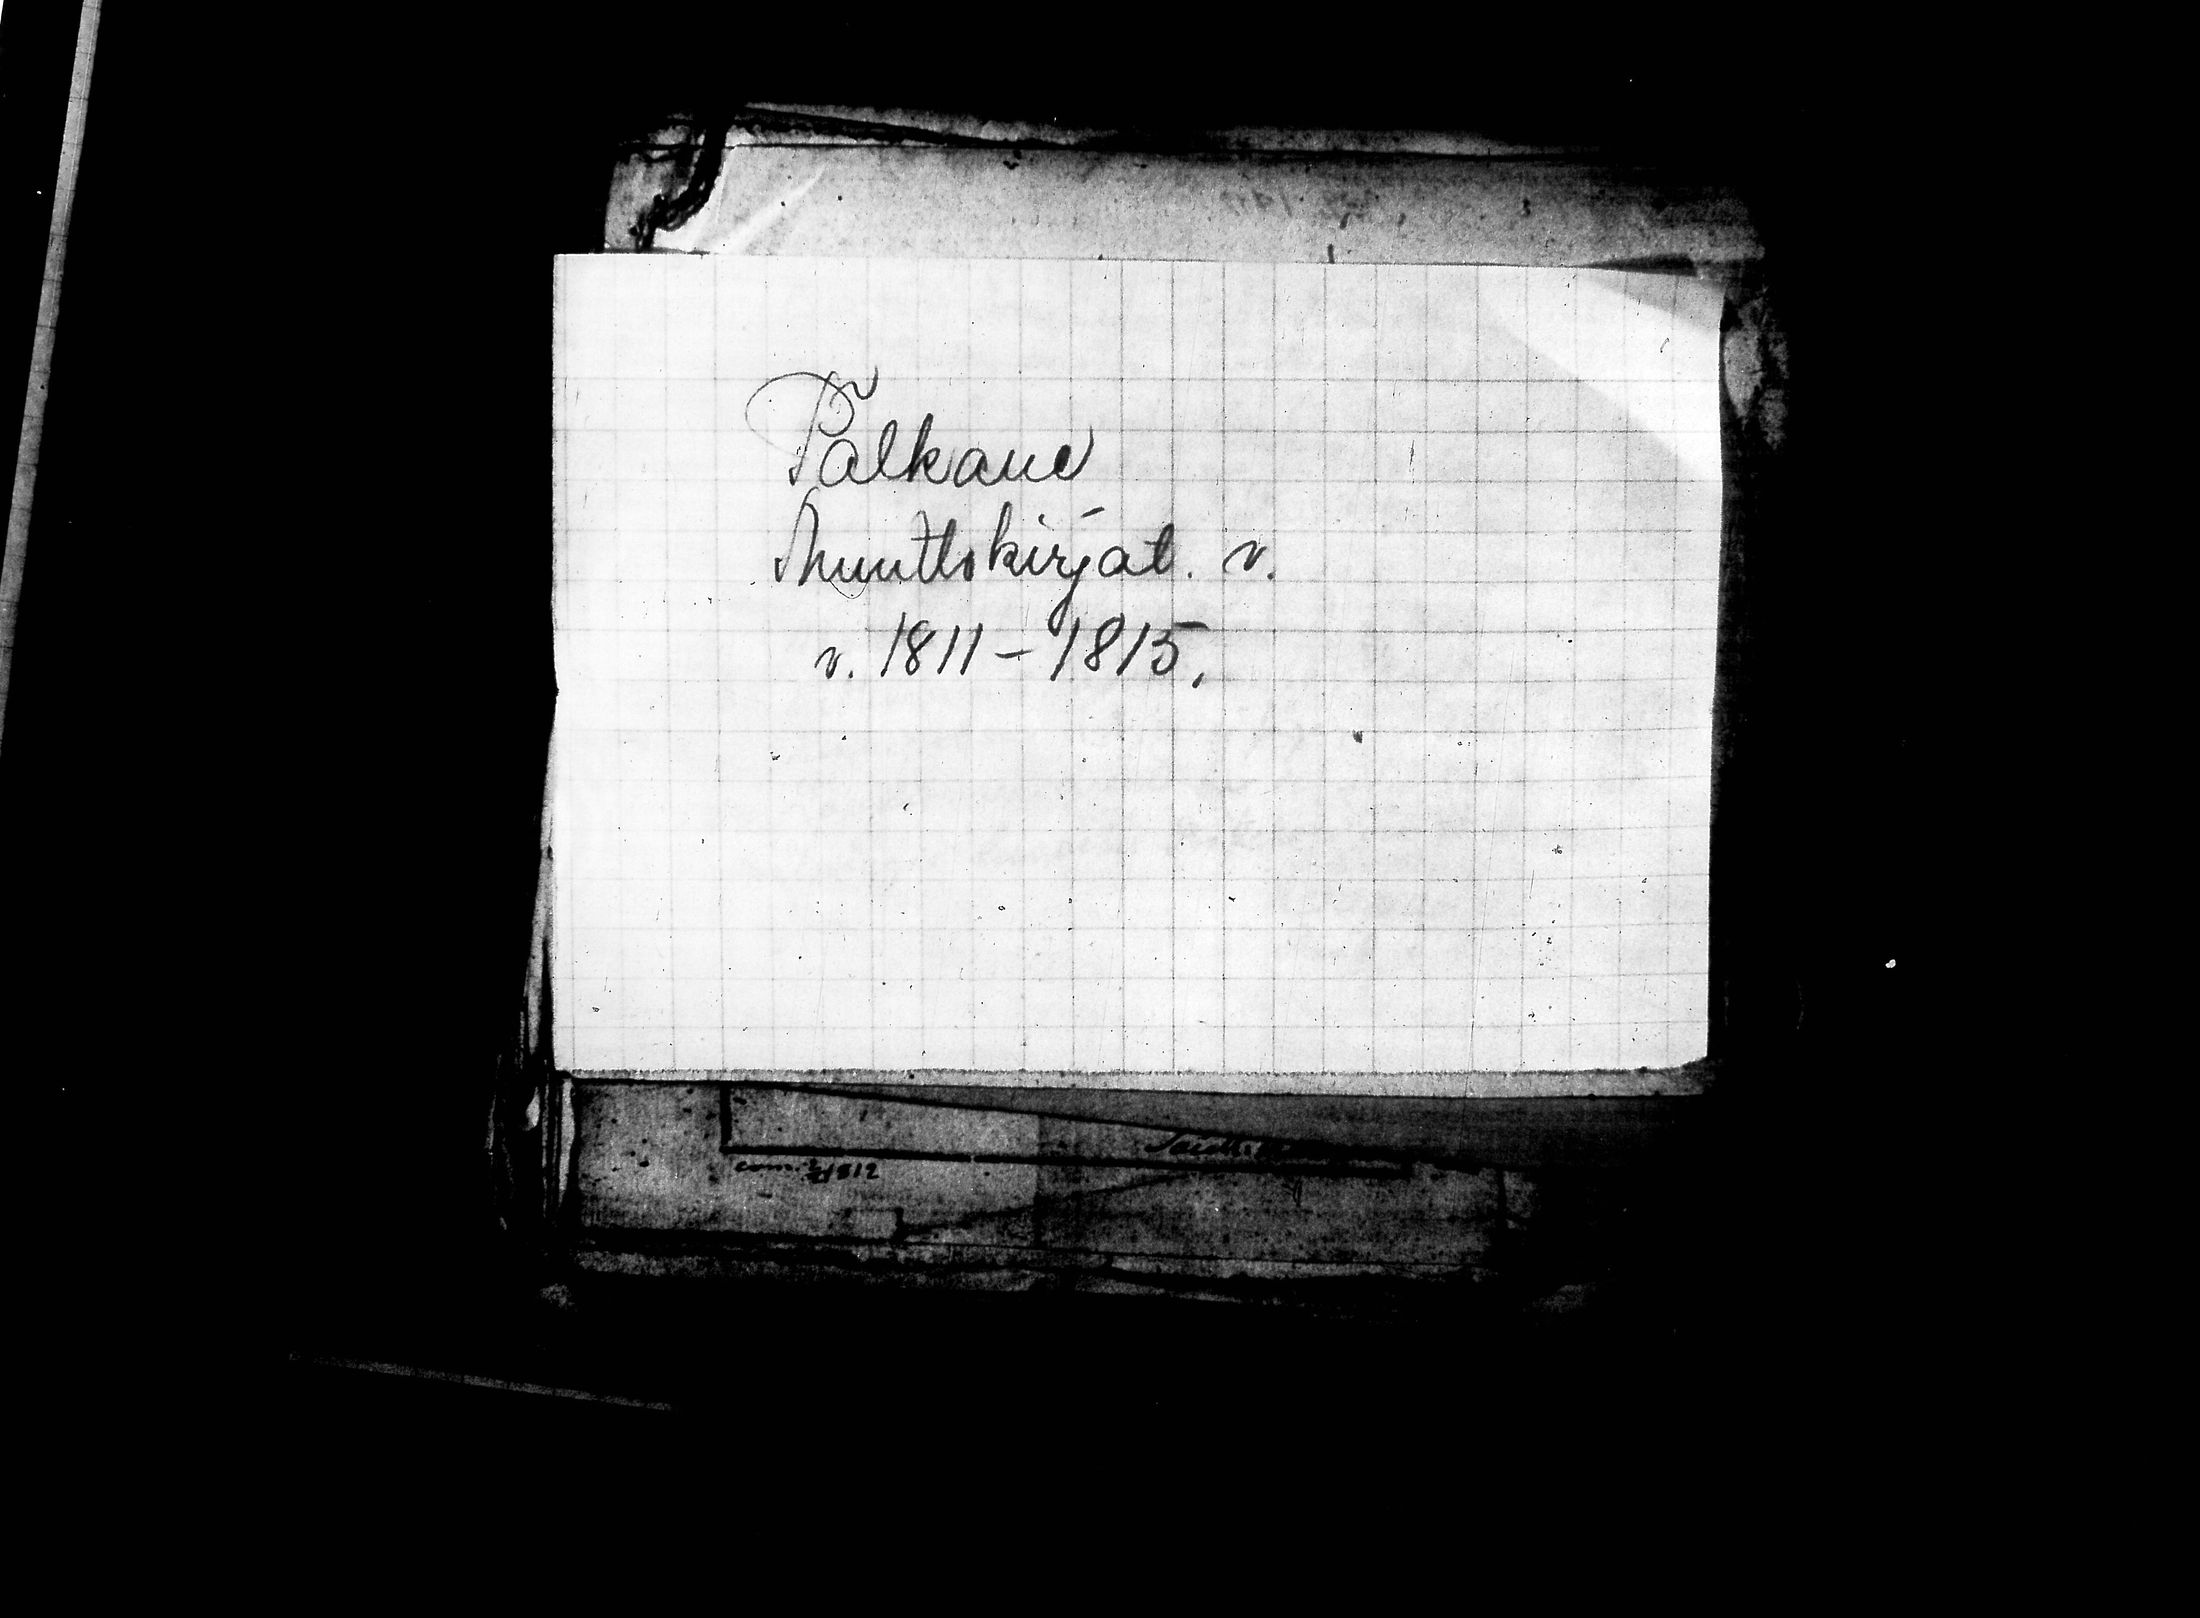 Pälkäne
Muuttokirjat. v.
v. 1811-1815.
1812